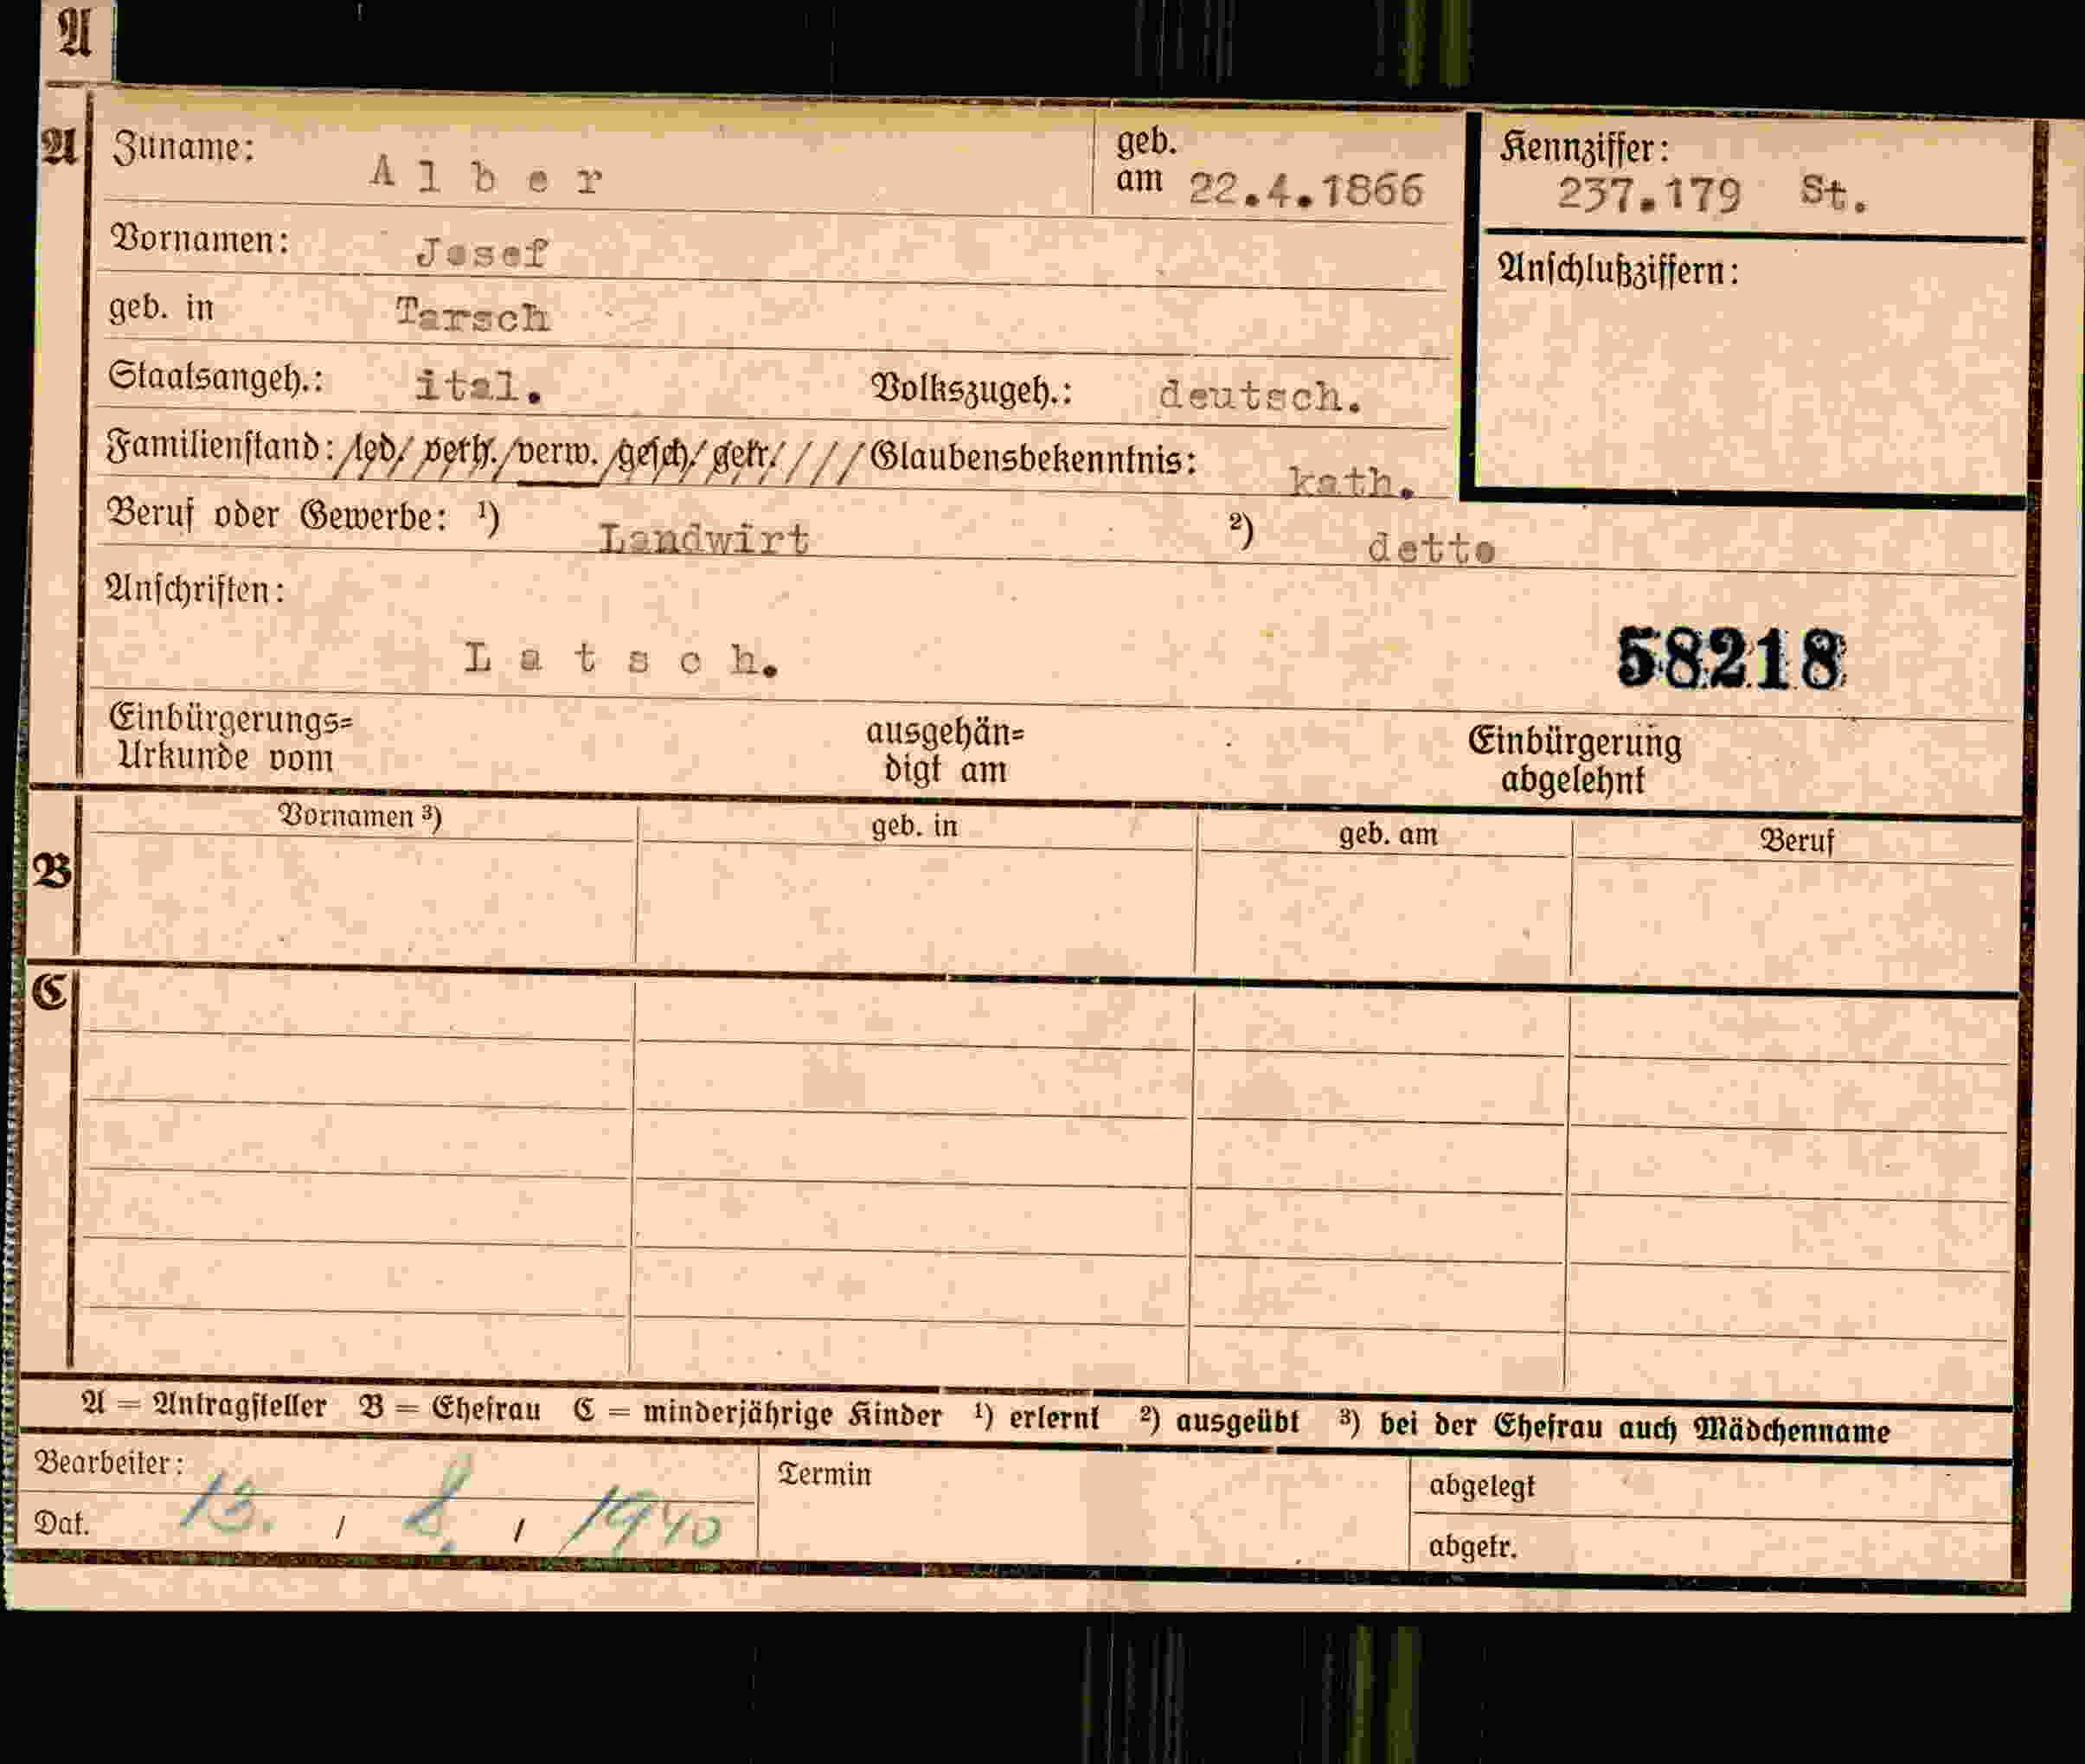 A
A Zuname: Alber geb. am 22.4.1866 Kennziffer: 237.179 St.
Vornamen: Josef Anschlußziffern:
geb. in Tarsch
Staatsangeh.: ital. Volkszugeh.: deutsch.
Familienstand: /led/ verh./verw./gesch/ getr./ / / / Glaubensbekenntnis: kath.
Beruf oder Gewerbe: ¹) Landwirt ²) detto
Anschriften:
Latsch. 58218
Einbürgerungs= ausgehän= Einbürgerung
Urkunde vom digt am abgelehnt
B Vornamen ³) geb. in geb. am Beruf
C
A = Antragsteller B = Ehefrau C = minderjährige Kinder ¹) erlernt ²) ausgeübt ³) bei der Ehefrau auch Mädchenname
Bearbeiter: Termin abgelegt
Dat. 13. / 8. / 1940 abgetr.